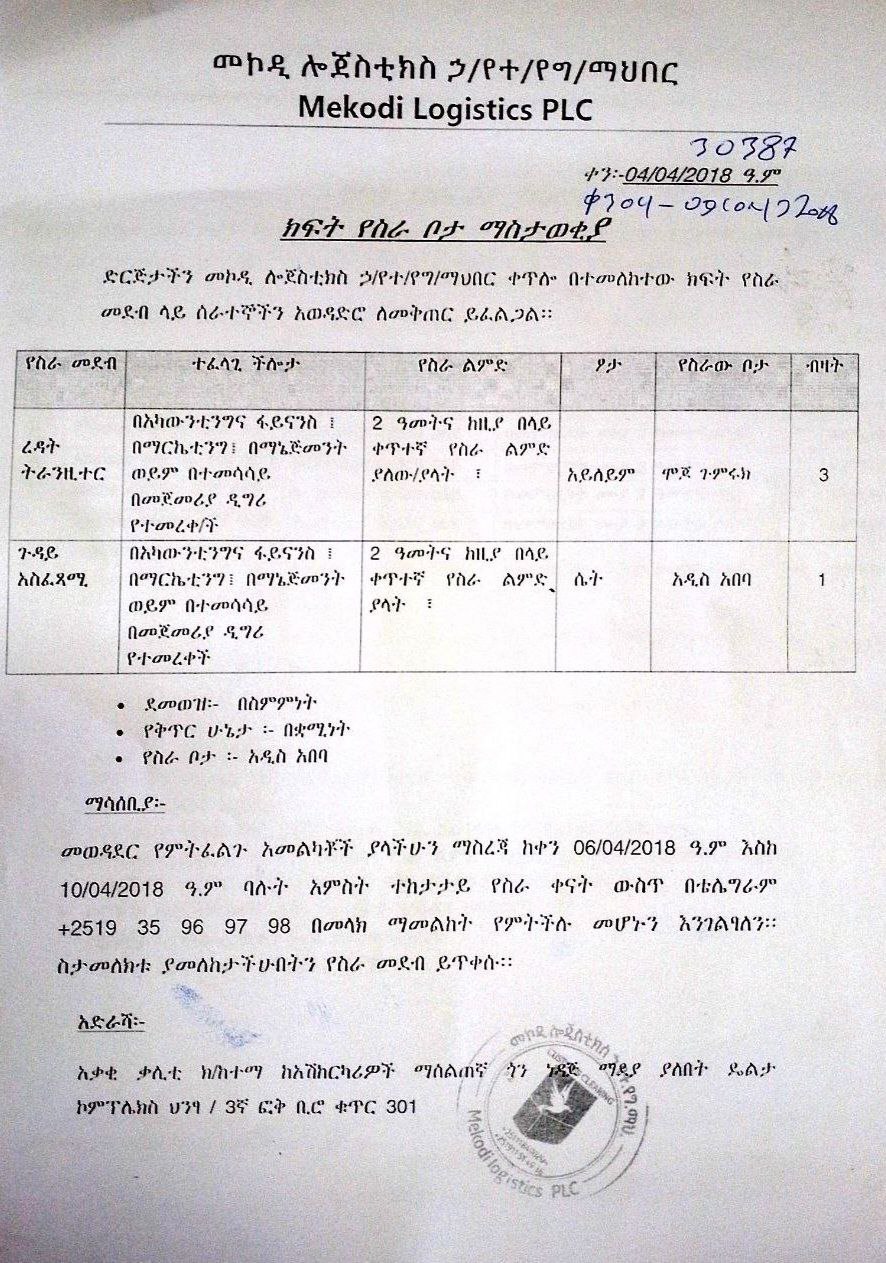 መኮዲ ሎጀስቲክስ ኃ/የተ/የግ/ማህበር
Mekodi Logistics PLC
30387
ቀን፡-04/04/2018 ዓ.ም
ክፍት የስራ ቦታ ማስታወቂያ
ድርጅታችን መኮዲ ሎጀስቲክስ ኃ/የተ/የግ/ማህበር ቀጥሎ በተመለከተው ክፍት የስራ
መደብ ላይ ሰራተኞችን አወዳድሮ ለመቅጠር ይፈልጋል፡፡
የስራ መደብ ተፈላጊ ችሎታ የስራ ልምድ ፆታ የስራው ቦታ ብዛት
ረዳት ትራንዚተር
በአካውንቲንግና ፋይናንስ ፤
በማርኬቲንግ፤ በማኔጅመንት
ወይም በተመሳሳይ
በመጀመሪያ ዲግሪ
የተመረቀ/ች
2 ዓመትና ከዚያ በላይ
ቀጥተኛ የስራ ልምድ
ያለው/ያላት ፣
አይለይም
ሞጆ ጉምሩክ
3
ጉዳይ
አስፈጻሚ
በአካውንቲንግና ፋይናንስ ፤
በማርኬቲንግ፤ በማኔጅመንት
ወይም በተመሳሳይ
በመጀመሪያ ዲግሪ
የተመረቀች
2 ዓመትና ከዚያ በላይ
ቀጥተኛ የስራ ልምድ
ያላት ፣
ሴት
አዲስ አበባ
1
• ደመወዝ፡- በስምምነት
• የቅጥር ሁኔታ ፡- በቋሚነት
• የስራ ቦታ ፡- አዲስ አበባ
ማሳሰቢያ፡-
መወዳደር የምትፈልጉ አመልካቾች ያላችሁን ማስረጃ ከቀን 06/04/2018 ዓ.ም እስከ
10/04/2018 ዓ.ም ባሉት አምስት ተከታታይ የስራ ቀናት ውስጥ በቴሌግራም
+2519 35 96 97 98 በመላክ ማመልከት የምትችሉ መሆኑን እንገልፃለን፡፡
ስታመለክቱ ያመለከታችሁበትን የስራ መደብ ይጥቀሱ፡፡
አድራሻ፡-
አቃቂ ቃሊቲ ክ/ከተማ ከአሽከርካሪዎች ማሰልጠኛ ጎን ነዳጅ ማደያ ያለበት ዴልታ
ኮምፕሌክስ ህንፃ / 3ኛ ፎቅ ቢሮ ቁጥር 301
መኮዲ ሎጂስቲክስ
Mekodi logistics PLC